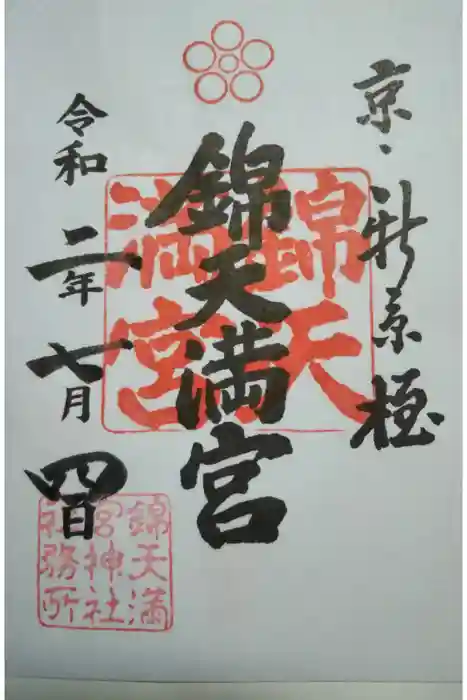 京、新京極
錦天満宮
錦天
満宮
令和二年七月四日
錦天満
宮神社
社務所